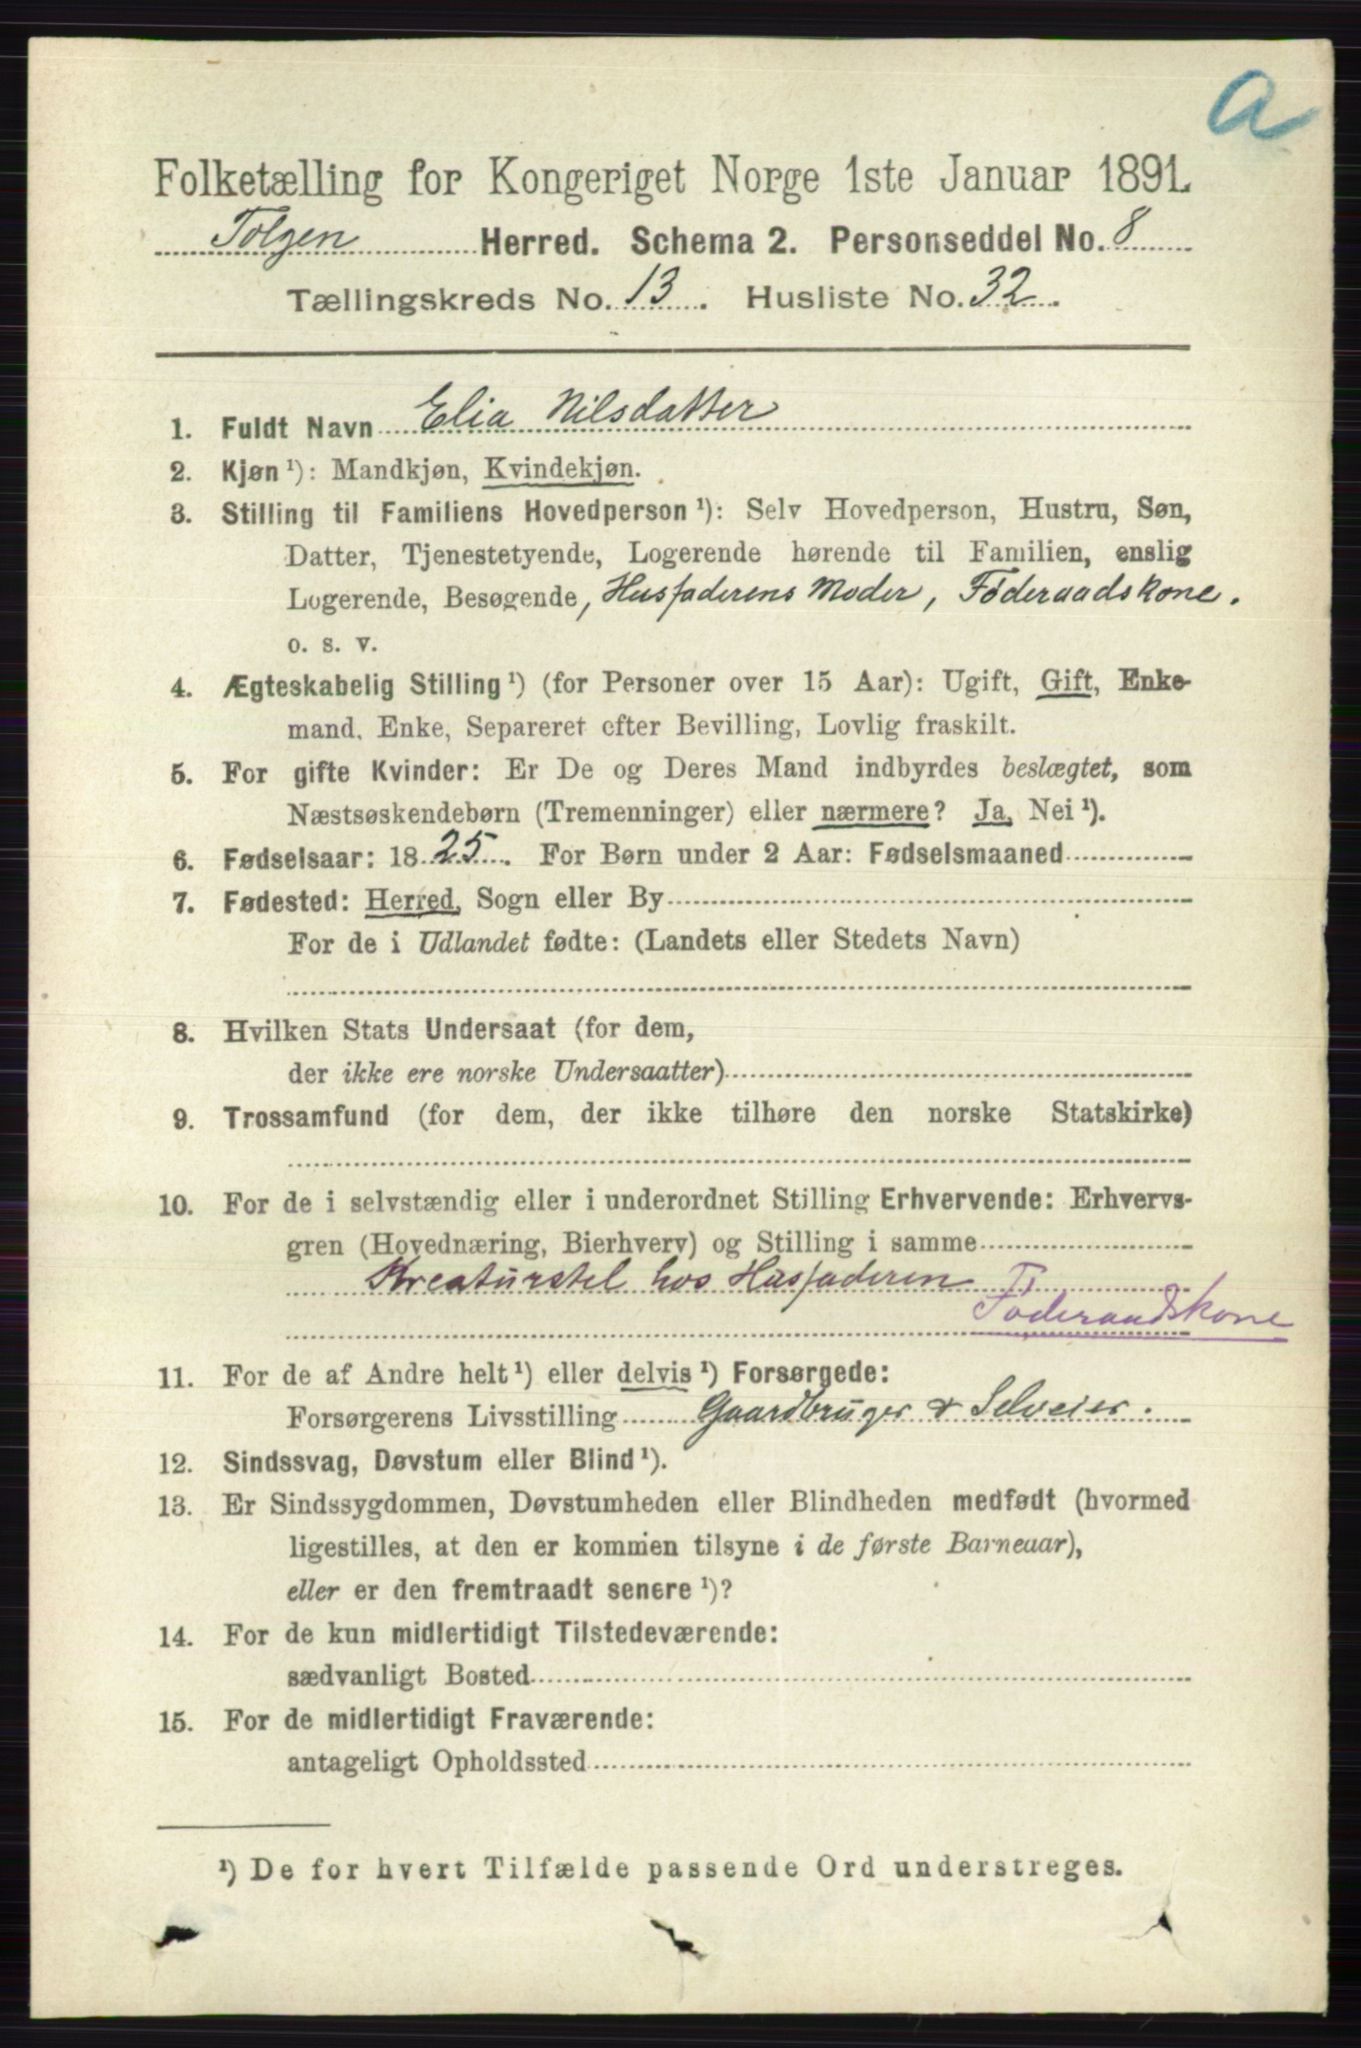 a
Folketælling for Kongeriget Norge 1ste Januar 1891.
Tolgen Herred. Schema 2. Personseddel No. 8
Tællingskreds No. 13. Husliste No. 32.
1. Fuldt Navn Elia Nilsdatter
2. Kjøn ¹): Mandkjøn, Kvindekjøn.
3. Stilling til Familiens Hovedperson ¹): Selv Hovedperson, Hustru, Søn,
Datter, Tjenestetyende, Logerende hørende til Familien, enslig
Logerende, Besøgende, Husfaderens Moder, Føderaadskone.
o. s. v.
4. Ægteskabelig Stilling ¹) (for Personer over 15 Aar): Ugift, Gift, Enke-
mand, Enke, Separeret efter Bevilling, Lovlig fraskilt.
5. For gifte Kvinder: Er De og Deres Mand indbyrdes beslægtet, som
Næstsøskendebørn (Tremenninger) eller nærmere? Ja, Nei ¹).
6. Fødselsaar: 1825. For Børn under 2 Aar: Fødselsmaaned
7. Fødested: Herred, Sogn eller By
For de i Udlandet fødte: (Landets eller Stedets Navn)
8. Hvilken Stats Undersaat (for dem,
der ikke ere norske Undersaatter)
9. Trossamfund (for dem, der ikke tilhøre den norske Statskirke)
10. For de i selvstændig eller i underordnet Stilling Erhvervende: Erhvervs-
gren (Hovednæring, Bierhverv) og Stilling i samme
Kreaturstel hos Husfaderen
Føderaadskone
11. For de af Andre helt ¹) eller delvis ¹) Forsørgede:
Forsørgerens Livsstilling Gaardbruger & Selveier.
12. Sindssvag, Døvstum eller Blind ¹).
13. Er Sindssygdommen, Døvstumheden eller Blindheden medfødt (hvormed
ligestilles, at den er kommen tilsyne i de første Barneaar),
eller er den fremtraadt senere ¹)?
14. For de kun midlertidigt Tilstedeværende:
sædvanligt Bosted
15. For de midlertidigt Fraværende:
antageligt Opholdssted
¹) De for hvert Tilfælde passende Ord understreges.